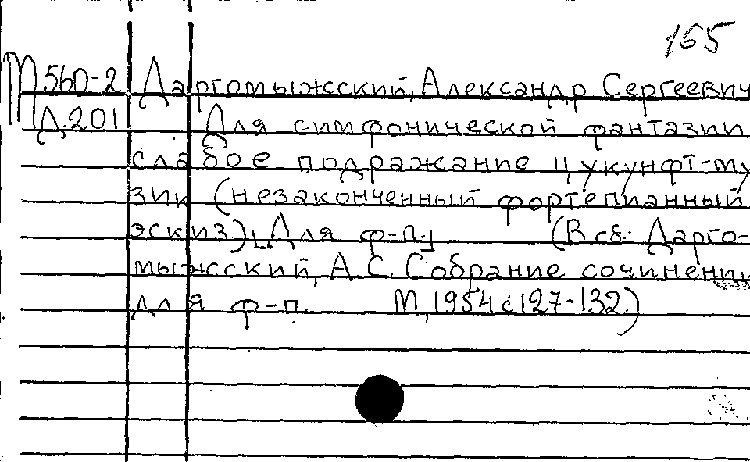 165
М 560-2 Даргомыжский, Александр Сергеевич
Д 201 Для симфонической фантазии
слабое подражание цукунфт-му
зик (незаконченный фортепианный
эскиз). [Для ф-п.] (В сб: Дарго-
мыжский, А.С. Собрание сочинений
для ф-п. М, 1954 с 127-132)